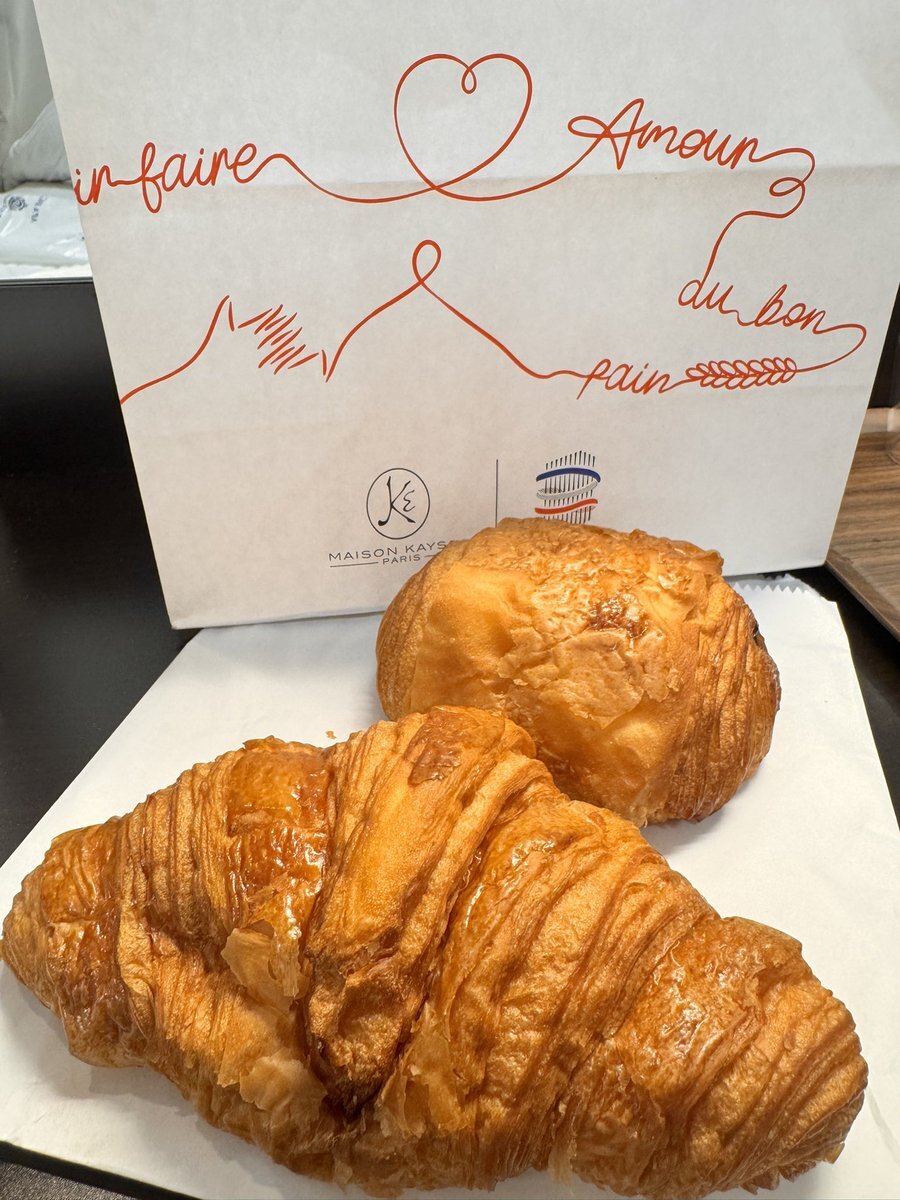 faire
Amour
du bon
pain
KE
MAISON
PARIS